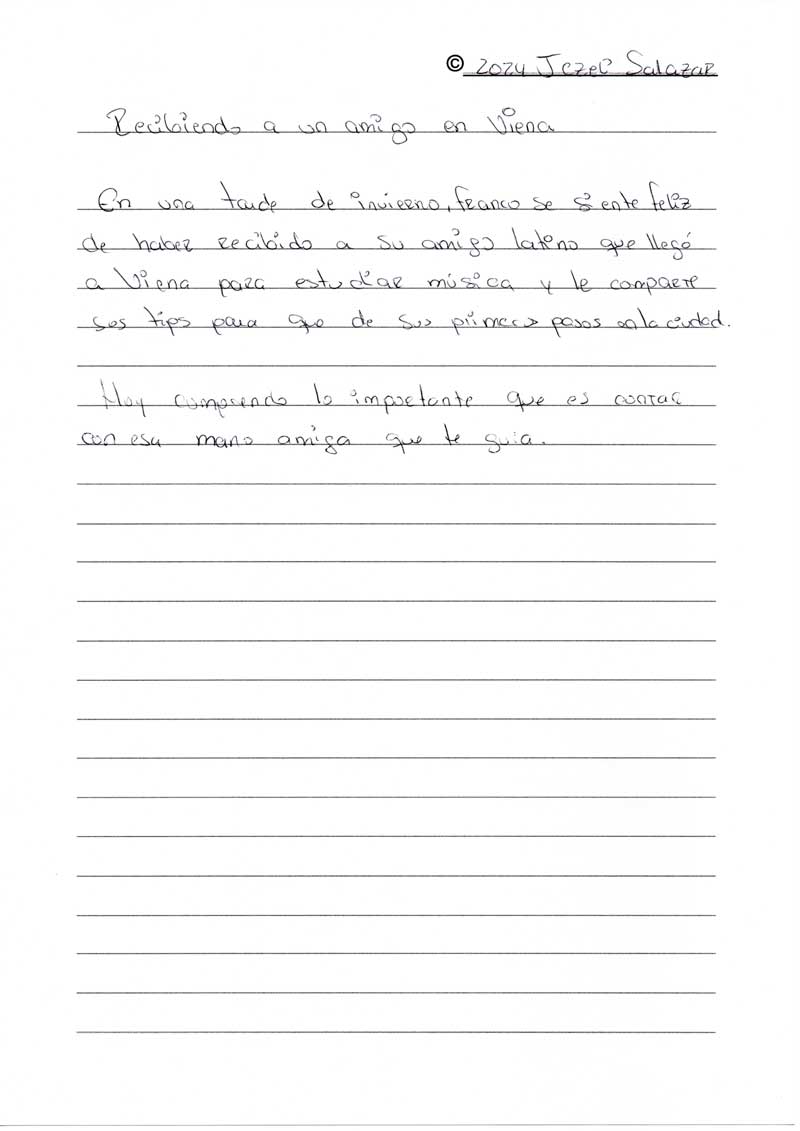 © 2024 Jezel Salazar
Recibiendo a un amigo en Viena
En una tarde de invierno, Franco se siente feliz
de haber recibido a su amigo latino que llegó
a Viena para estudiar música y le comparte
sus tips para que de sus primeros pasos en la ciudad.
Hoy comprendo lo importante que es contar
con esa mano amiga que te guia.